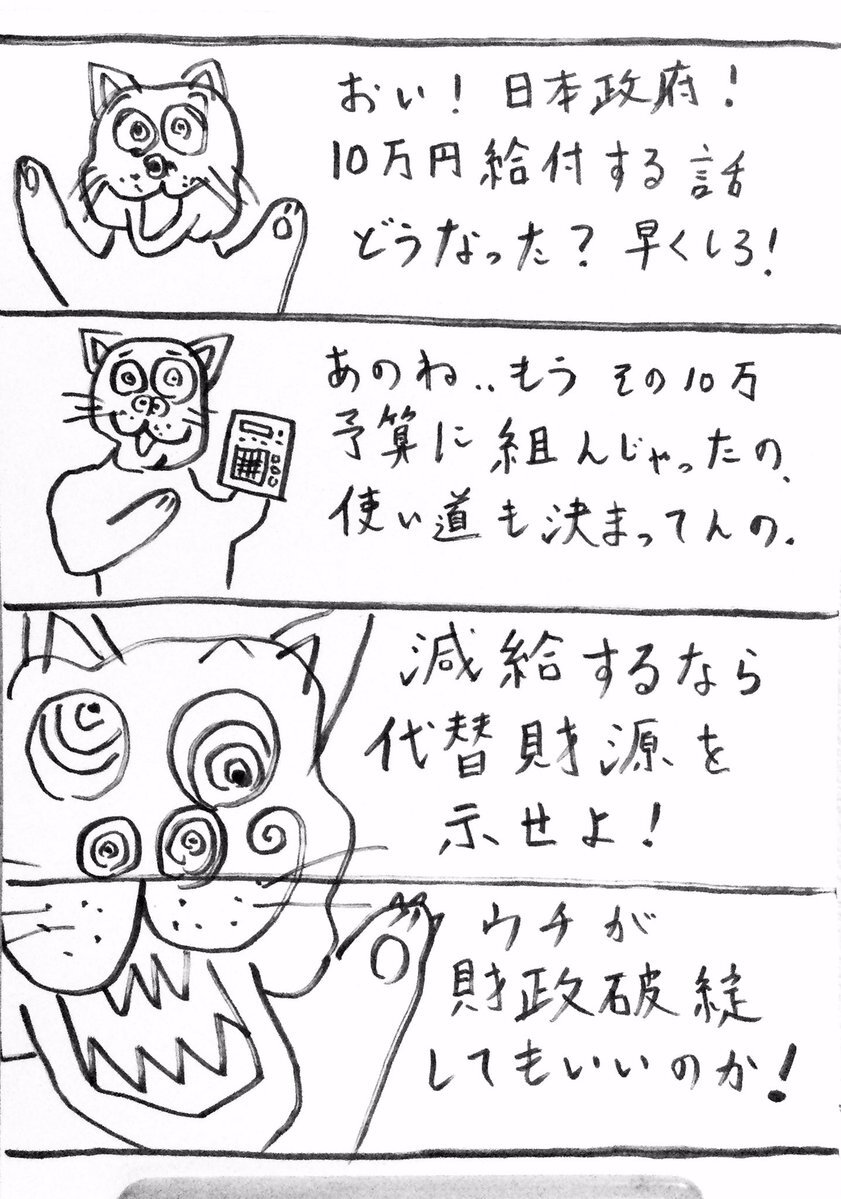 おい！日本政府！
10万円給付する話
どうなった？早くしろ！
あのね‥もうその10万
予算に組んじゃったの、
使い道も決まってんの.
減給するなら
代替財源を
示せよ！
ウチが
財政破綻
してもいいのか！